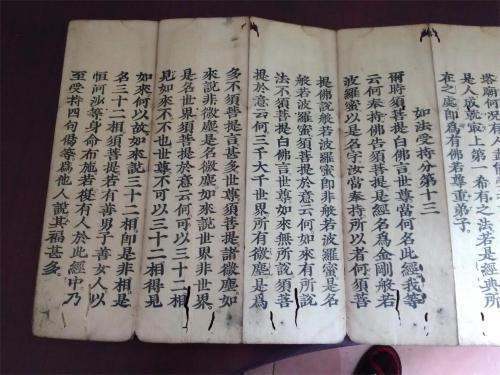 塔廟何況有人
是人成就最上第一希有之法若是經典所
在之處即為有佛若尊重弟子
如法受持分第十三
爾時須菩提白佛言世尊當何名此經我等
云何奉持佛告須菩提是經名為金剛般若
波羅蜜以是名字汝當奉持所以者何須菩
提佛說般若波羅蜜即非般若波羅蜜是名
般若波羅蜜須菩提於意云何如來有所說
法不須菩提白佛言世尊如來無所說須菩
提於意云何三千大千世界所有微塵是為
多不須菩提言甚多世尊須菩提諸微塵如
來說非微塵是名微塵如來說世界非世界
是名世界須菩提於意云何可以三十二相
見如來不不也世尊不可以三十二相得見
如來何以故如來說三十二相即是非相是
名三十二相須菩提若有善男子善女人以
恒河沙等身命布施若復有人於此經中乃
至受持四句偈等為他人說其福甚多